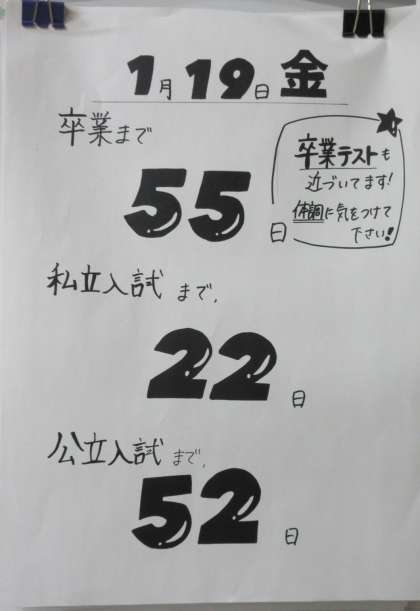 1月19日 金
卒業まで
55日
卒業テストも
近づいてます!
体調に気をつけて
下さい!
私立入試 まで、
22日
公立入試 まで、
52日